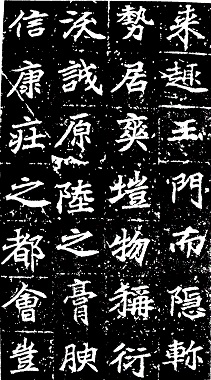 来趣王門而隱軫
勢居爽塏物稱衍
沃誠原陸之膏腴
信康莊之都會豈